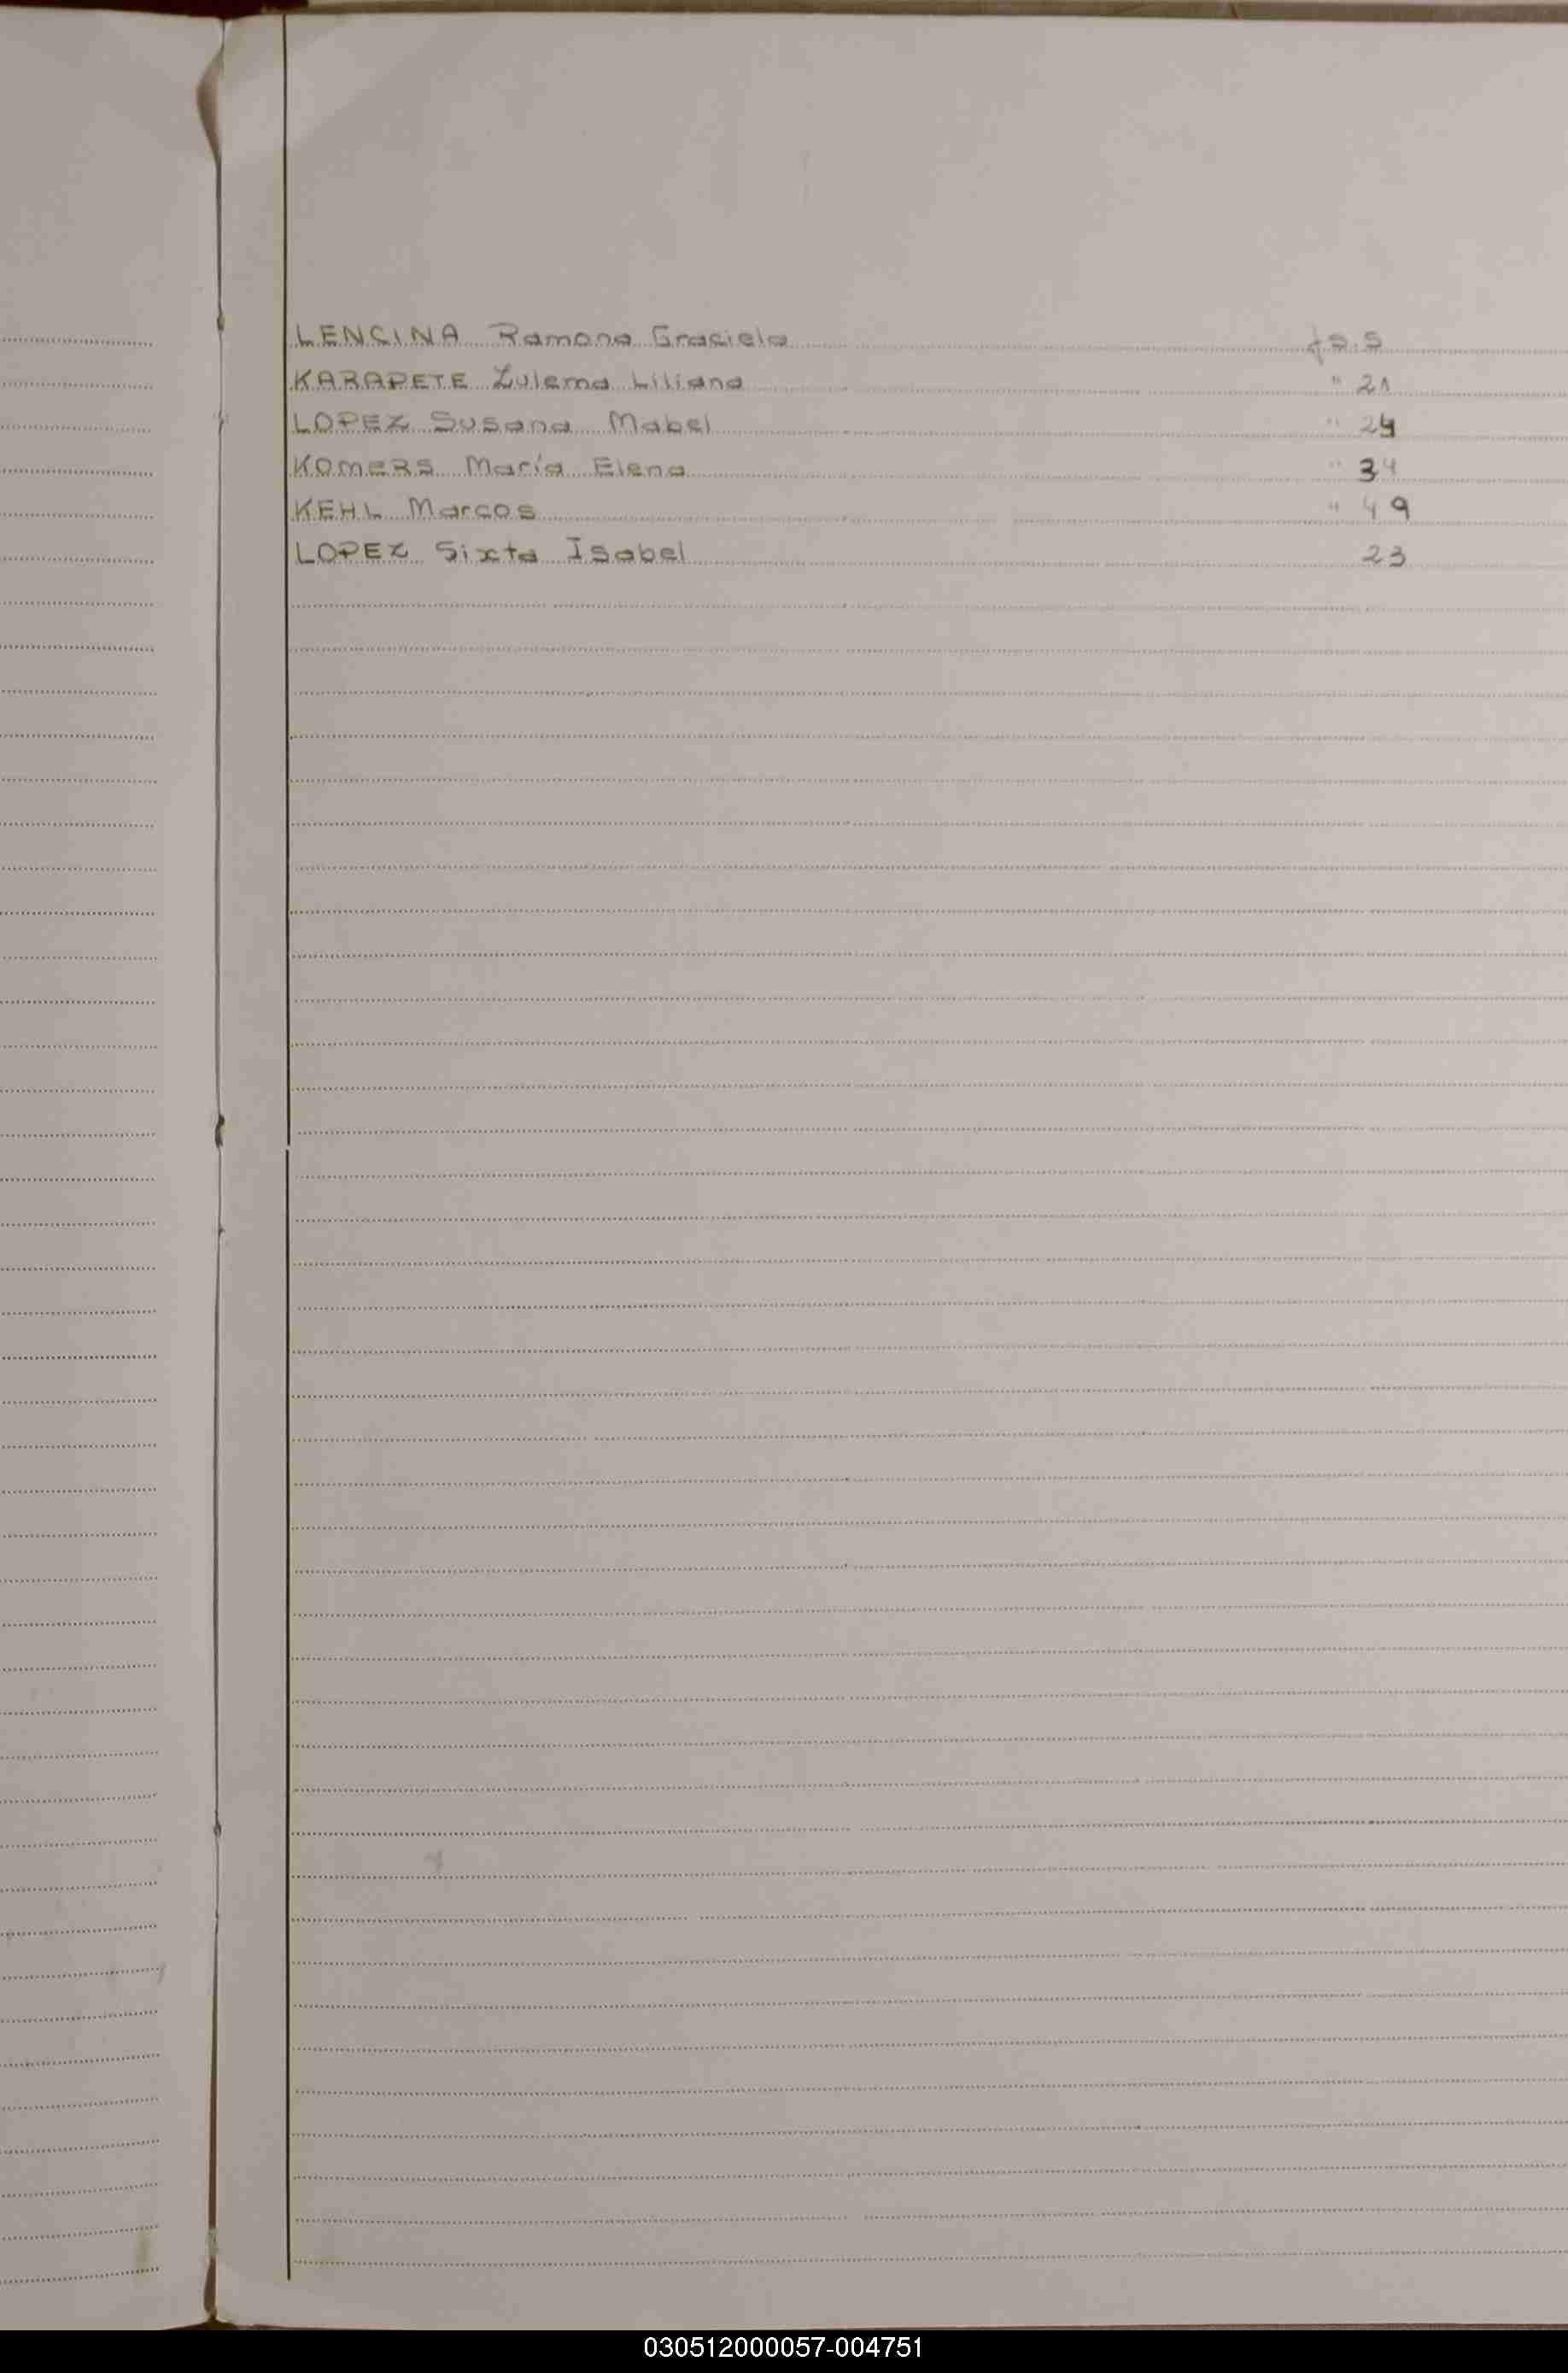 LENCINA Ramona Graciela fs. 5
KARAPETE Zulema Liliana " 21
LOPEZ Susana Mabel " 24
KOMERS María Elena " 34
KEHL Marcos " 49
LOPEZ Sixta Isabel 23
030512000057-004751